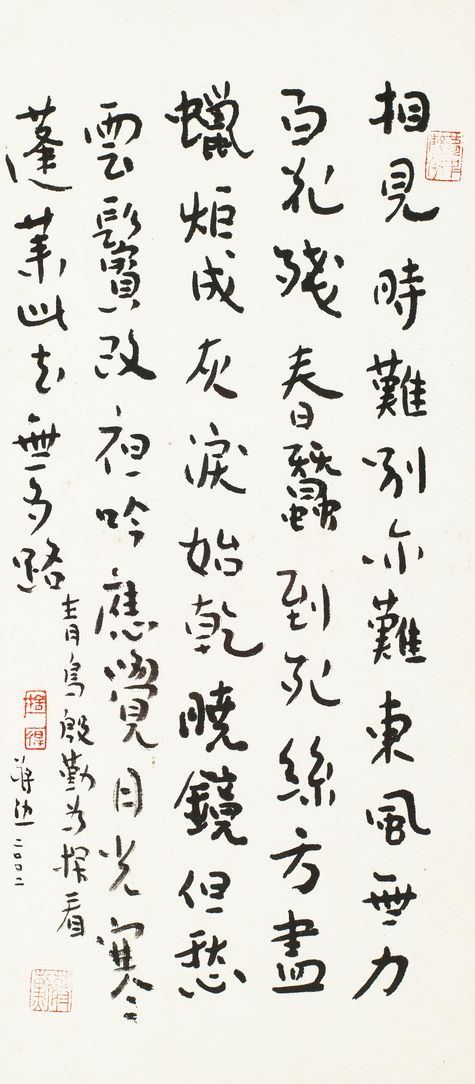 相見時難別亦難東風無力
百花殘春蠶到死絲方盡
蠟炬成灰淚始乾曉鏡但愁
雲鬢改夜吟應覺月光寒
蓬萊此去無多路
青鳥殷勤為探看
捨得
蔣勳二〇〇二